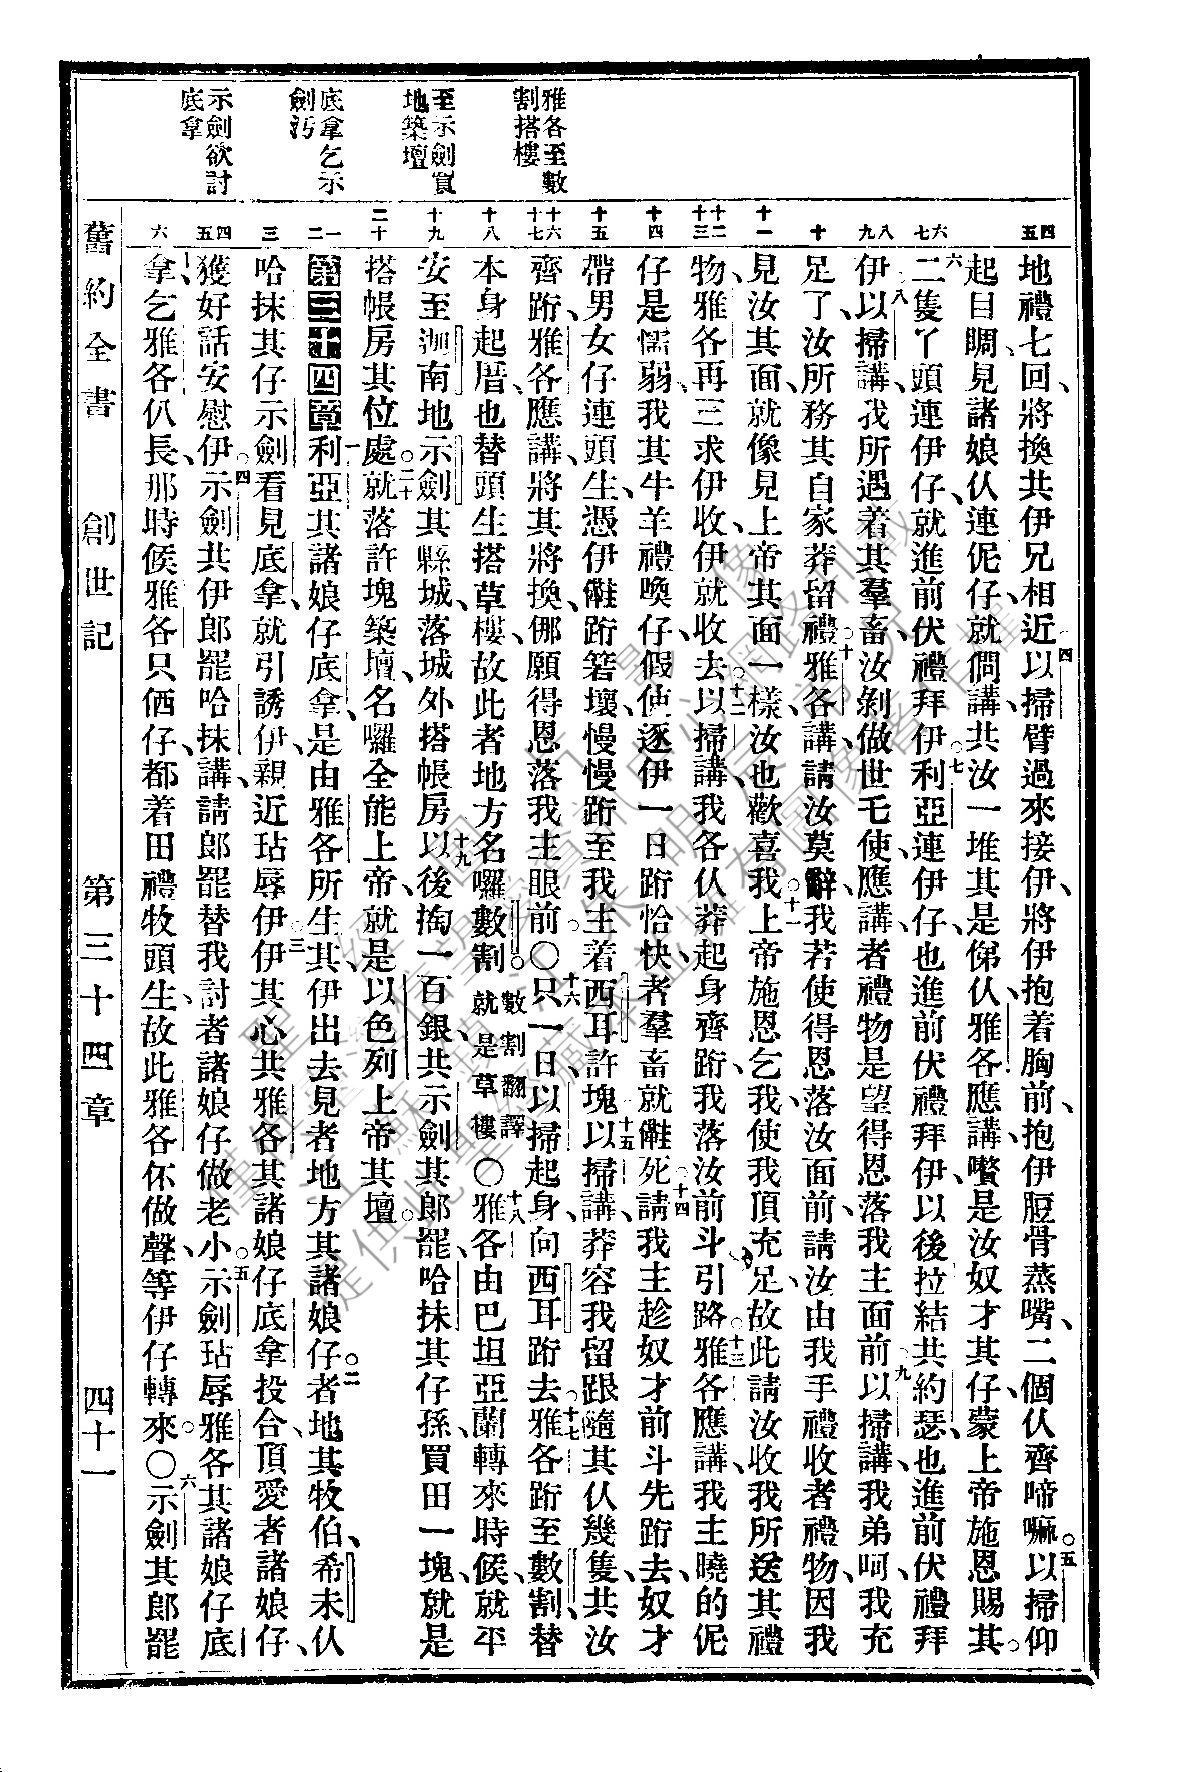 雅各至數
割搭樓
至示劍買
地築壇
底拿乞示
劍污
示劍欲討
底拿
四 五
六 七
八 九
十
十一
十二 十三
十四
十五
十六 十七
十八
十九
二十
一 二
三
四 五
六
地禮七回、將換共伊兄相近、四以掃臂過來接伊、將伊抱着胸前、抱伊脰骨蒸嘴、二個仈齊啼嘛。五以掃仰
起目睭、見諸娘仈連伲仔、就倜講、共汝一堆其是俤仈、雅各應講、嚽是汝奴才其仔、蒙上帝施恩賜其。
六二隻丫頭連伊仔、就進前伏禮拜伊。七利亞連伊仔也進前伏禮拜伊、以後拉結共約瑟也進前伏禮拜
八伊、以掃講、我所遇着其羣畜、汝剝做世乇使、應講、者禮物是望得恩落我主面前。九以掃講、我弟呵、我充
足了、汝所務其自家莽留禮。十雅各講、請汝莫辭、我若使得恩落汝面前、請汝由我手禮收者禮物、因我
見汝其面、就像見上帝其面一樣、汝也歡喜我。十一上帝施恩乞我、使我頂充足、故此請汝收我所送其禮
物、雅各再三求伊收、伊就收去。十二以掃講、我各仈莽起身齊跲、我落汝前斗引路。十三雅各應講、我主曉的伲
仔是懦弱、我其牛羊禮喚仔、假使逐伊一日跲恰快、者羣畜就儺死。十四請我主趁奴才前斗先跲去、奴才
帶男女仔連頭生、憑伊儺跲箬壤、慢慢跲至我主着西耳許塊。十五以掃講、莽容我留跟隨其仈幾隻、共汝
齊跲、雅各應講、將其將換、倻願得恩落我主眼前。○十六只一日、以掃起身、向西耳跲去。十七雅各跲至數割、替
本身起厝、也替頭生搭草樓、故此者地方名囉數割。數割翻譯就是草樓○十八雅各由巴坦亞蘭轉來時候、就平
安至迦南地示劍其縣城、落城外搭帳房。十九以後掏一百銀、共示劍其郎罷、哈抹其仔孫、買田一塊、就是
搭帳房其位處。二十就落許塊築壇、名囉全能上帝、就是以色列上帝其壇。
第三十四章 一利亞其諸娘仔底拿、是由雅各所生其、伊出去見者地方其諸娘仔。二者地其牧伯、希未仈
哈抹其仔示劍看見底拿、就引誘伊、親近玷辱伊。三伊其心共雅各其諸娘仔底拿投合、頂愛者諸娘仔、
獲好話安慰伊。四示劍共伊郎罷哈抹講、請郎罷替我討者諸娘仔做老小。五示劍玷辱雅各其諸娘仔底
拿、乞雅各仈長、那時候雅各只俩仔、都着田禮牧頭生、故此雅各伓做聲、等伊仔轉來。○六示劍其郎罷
舊約全書 創世記 第三十四章 四十一